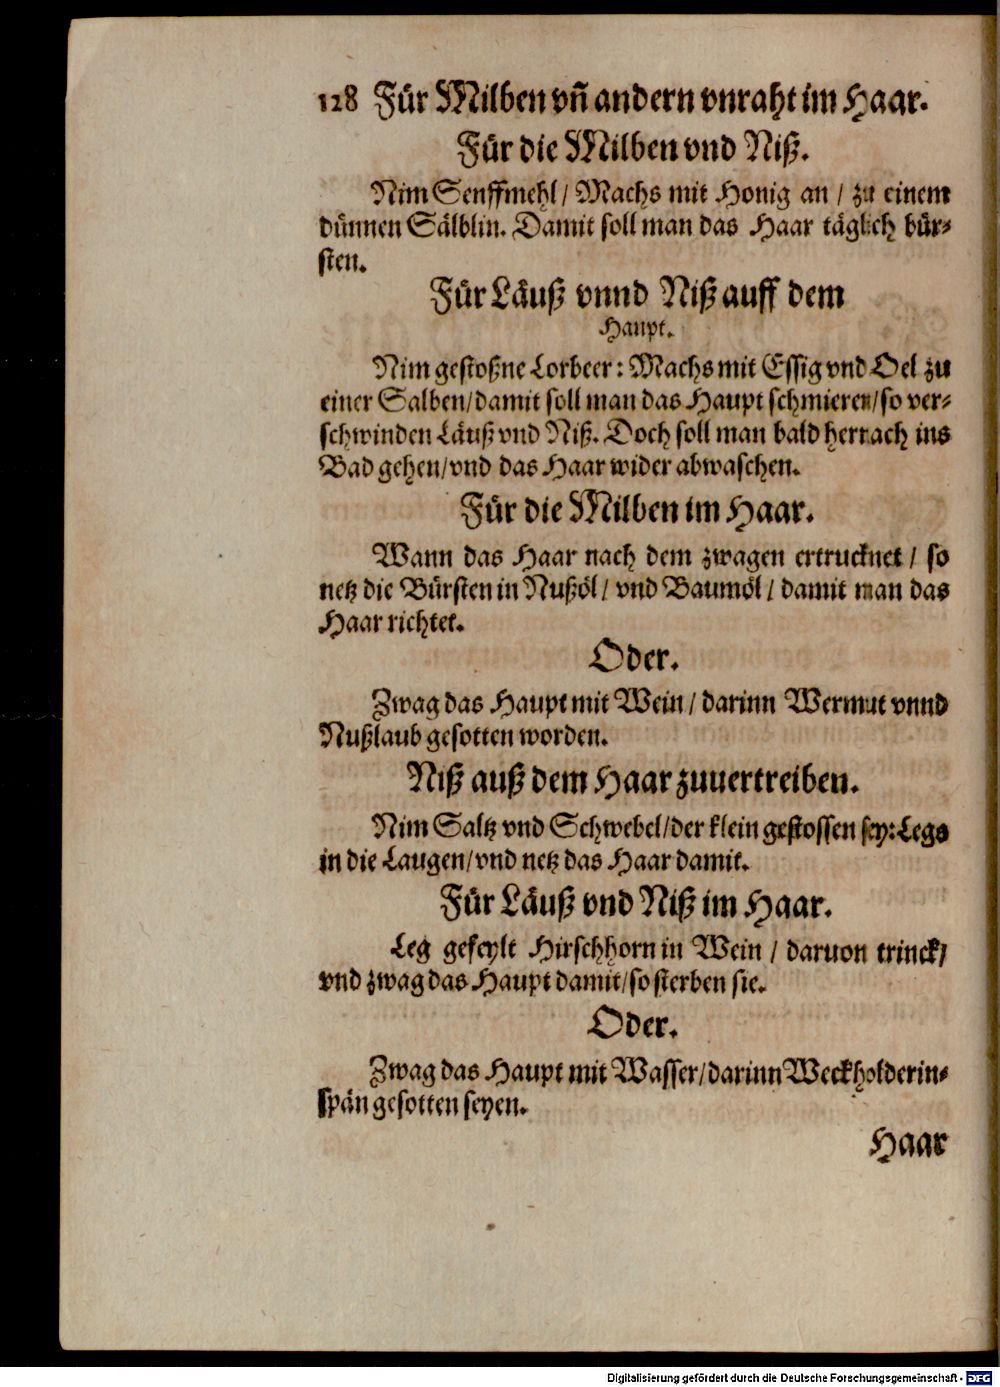 128 Für Milben vñ andern vnraht im Haar.
Für die Milben vnd Niß.
Nim Senffmehl / Machs mit Honig an / zu einem
dünnen Sälblin. Damit soll man das Haar täglich bür-
sten.
Für Läuß vnnd Niß auff dem
Haupt.
Nim gestoßne Lorbeer: Machs mit Essig vnd Oel zu
einer Salben/damit soll man das Haupt schmieren/so ver-
schwinden Läuß vnd Niß. Doch soll man bald hernach ins
Bad gehen/vnd das Haar wider abwaschen.
Für die Milben im Haar.
Wann das Haar nach dem zwagen ertrucknet / so
netz die Bürsten in Nußöl / vnd Baumöl / damit man das
Haar richtet.
Oder.
Zwag das Haupt mit Wein / darinn Wermut vnnd
Nußlaub gesotten worden.
Niß auß dem Haar zuuertreiben.
Nim Saltz vnd Schwebel/der klein gestossen sey: Legs
in die Laugen/vnd netz das Haar damit.
Für Läuß vnd Niß im Haar.
Leg gefeylt Hirschhorn in Wein / daruon trinck/
vnd zwag das Haupt damit/so sterben sie.
Oder.
Zwag das Haupt mit Wasser/darinn Weckholderin-
spän gesotten seyen.
Haar
Digitalisierung gefördert durch die Deutsche Forschungsgemeinschaft - DFG